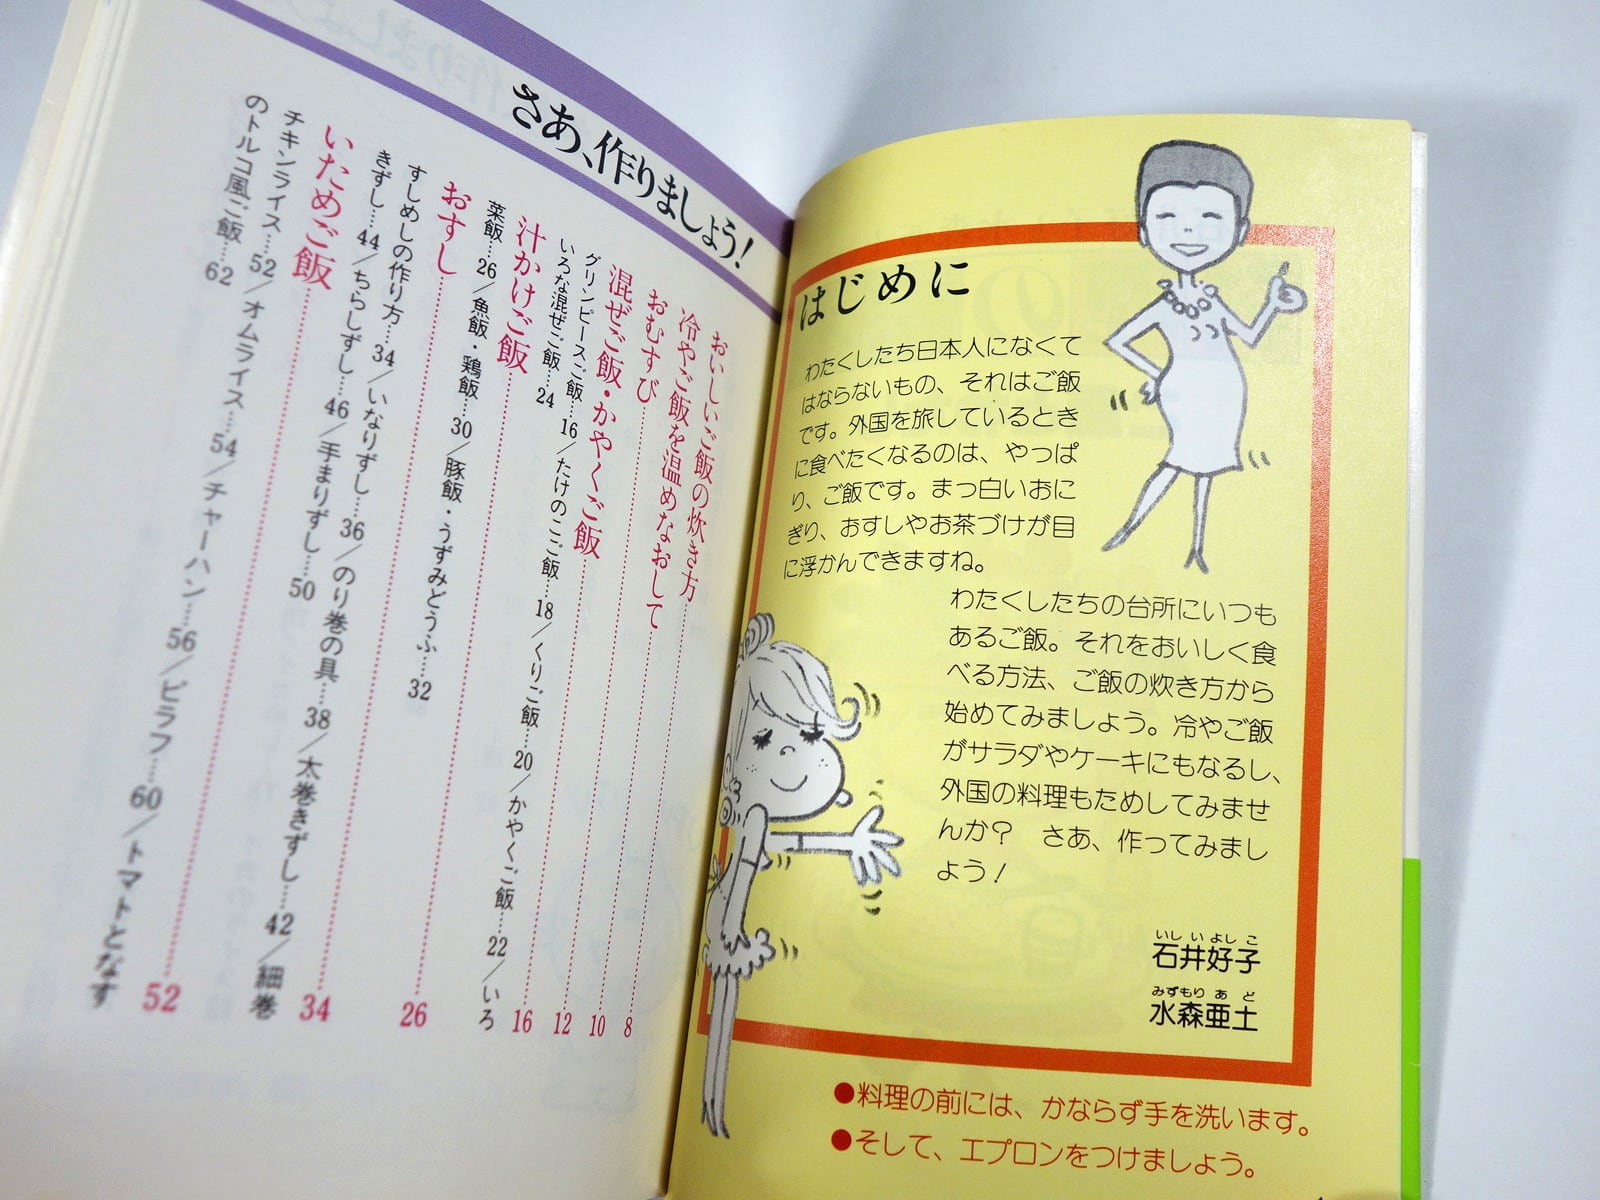 はじめに
わたくしたち日本人になくて
はならないもの、それはご飯
です。外国を旅しているとき
に食べたくなるのは、やっぱ
り、ご飯です。まっ白いおに
ぎり、おすしやお茶づけが目
に浮かんできますね。
わたくしたちの台所にいつも
あるご飯。それをおいしく食
べる方法、ご飯の炊き方から
始めてみましょう。冷やご飯
がサラダやケーキにもなるし、
外国の料理もためしてみませ
んか？　さあ、作ってみまし
ょう！
いしいよしこ
石井好子
みずもりあど
水森亜土
●料理の前には、かならず手を洗います。
●そして、エプロンをつけましょう。
さあ、作りましょう！
おいしいご飯の炊き方……8
冷やご飯を温めなおして……10
おむすび……12
混ぜご飯・かやくご飯……16
グリンピースご飯…16／たけのこご飯…18／くりご飯…20／かやくご飯…22／いろ
いろな混ぜご飯…24
汁かけご飯……26
菜飯…26／魚飯・鶏飯…30／豚飯・うずみどうふ…32
おすし……34
すしめしの作り方…34／いなりずし…36／のり巻の具…38／太巻きずし…42／細巻
きずし…44／ちらしずし…46／手まりずし…50
いためご飯……52
チキンライス…52／オムライス…54／チャーハン…56／ピラフ…60／トマトとなす
のトルコ風ご飯…62